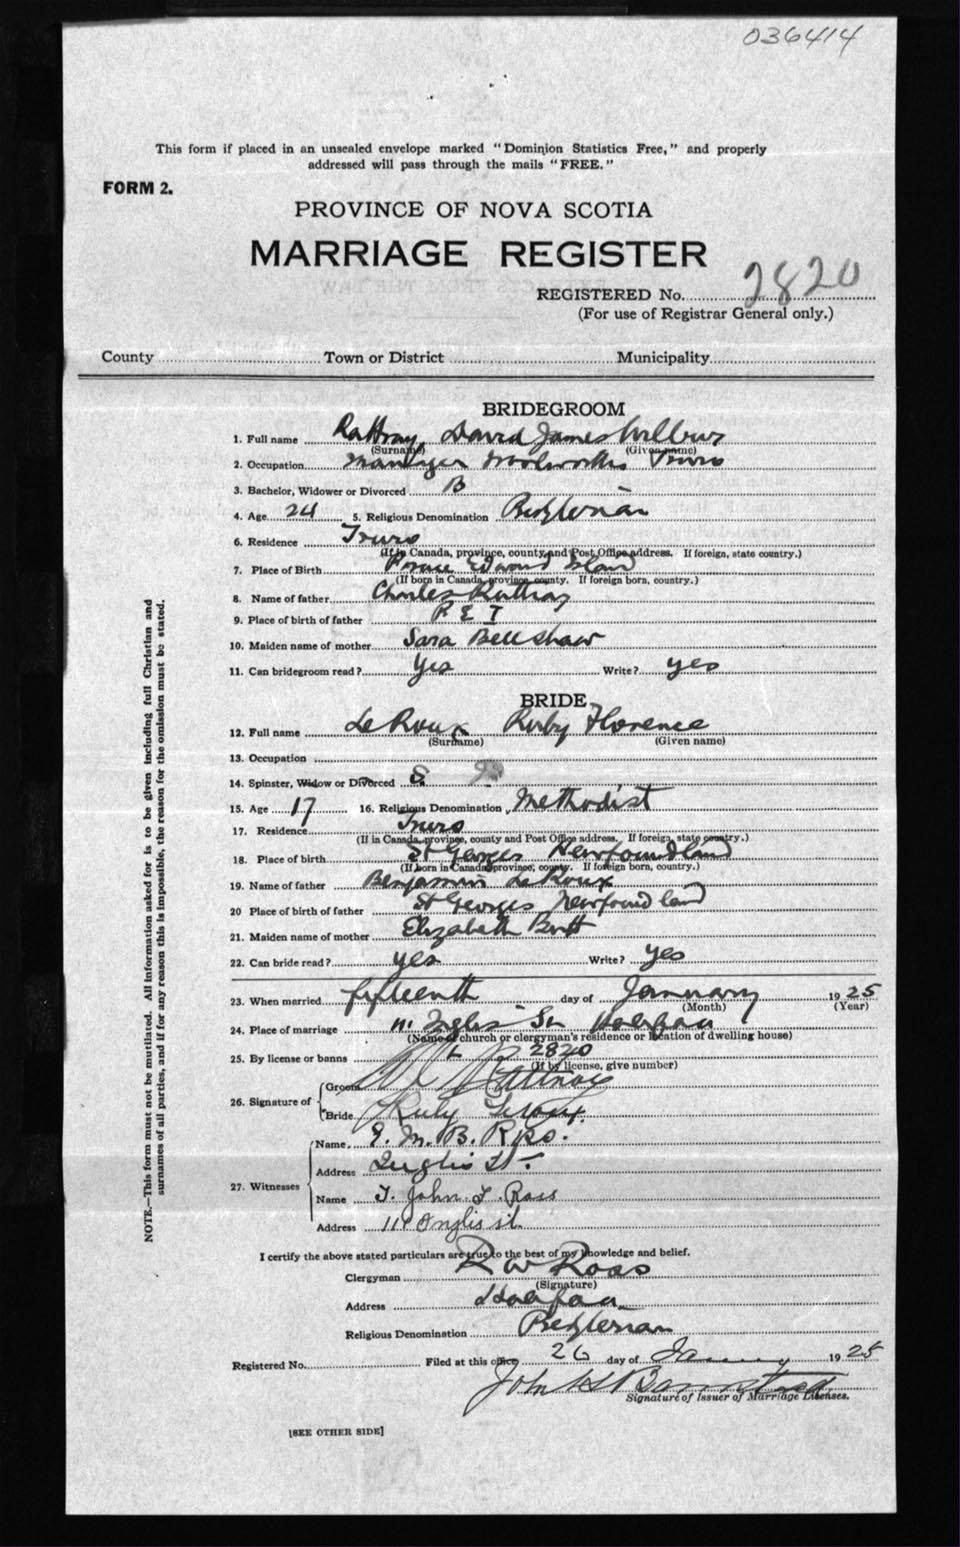 036414
This form if placed in an unsealed envelope marked "Dominion Statistics Free," and properly
addressed will pass through the mails "FREE."
FORM 2.
PROVINCE OF NOVA SCOTIA
MARRIAGE REGISTER
REGISTERED No. 2820
(For use of Registrar General only.)
County Town or District Municipality
BRIDEGROOM
1. Full name Rattray, David James Wilbur
(Surname) (Given name)
2. Occupation Manager Woolworths Truro
3. Bachelor, Widower or Divorced B
4. Age 24 5. Religious Denomination
6. Residence Truro
(If in Canada, province, county and Post Office address. If foreign, state country.)
7. Place of Birth Prince Edward Island
(If born in Canada, province, county. If foreign born, country.)
8. Name of father Charles Rattray
9. Place of birth of father P E I
10. Maiden name of mother Sara Bell Shaw
11. Can bridegroom read? Yes Write? yes
BRIDE
12. Full name Le Roux Ruby Florence
(Surname) (Given name)
13. Occupation
14. Spinster, Widow or Divorced S
15. Age 17 16. Religious Denomination Methodist
17. Residence Truro
(If in Canada, province, county and Post Office address. If foreign, state country.)
18. Place of birth St Georges Newfoundland
(If born in Canada province, county. If foreign born, country.)
19. Name of father Benjamin Le Roux
20 Place of birth of father St Georges Newfoundland
21. Maiden name of mother Elizabeth Butt
22. Can bride read? yes Write? yes
23. When married fifteenth day of January 1925
(Month) (Year)
24. Place of marriage Inglis St Halifax
(Name of church or clergyman's residence or location of dwelling house)
25. By license or banns L 2820
(If by license, give number)
26. Signature of Groom Rattray
Bride Ruby Leroux
27. Witnesses Name B. Ross.
Address Inglis St.
Name John Ross
Address Inglis st.
I certify the above stated particulars are true to the best of my knowledge and belief.
Clergyman R W Ross
(Signature)
Address Halifax
Religious Denomination
Registered No. Filed at this office 26 day of January 1925
John
Signature of Issuer of Marriage Licenses.
[SEE OTHER SIDE]
NOTE.—This form must not be mutilated. All information asked for is to be given including full Christian and
surnames of all parties, and if for any reason this is impossible, the reason for the omission must be stated.